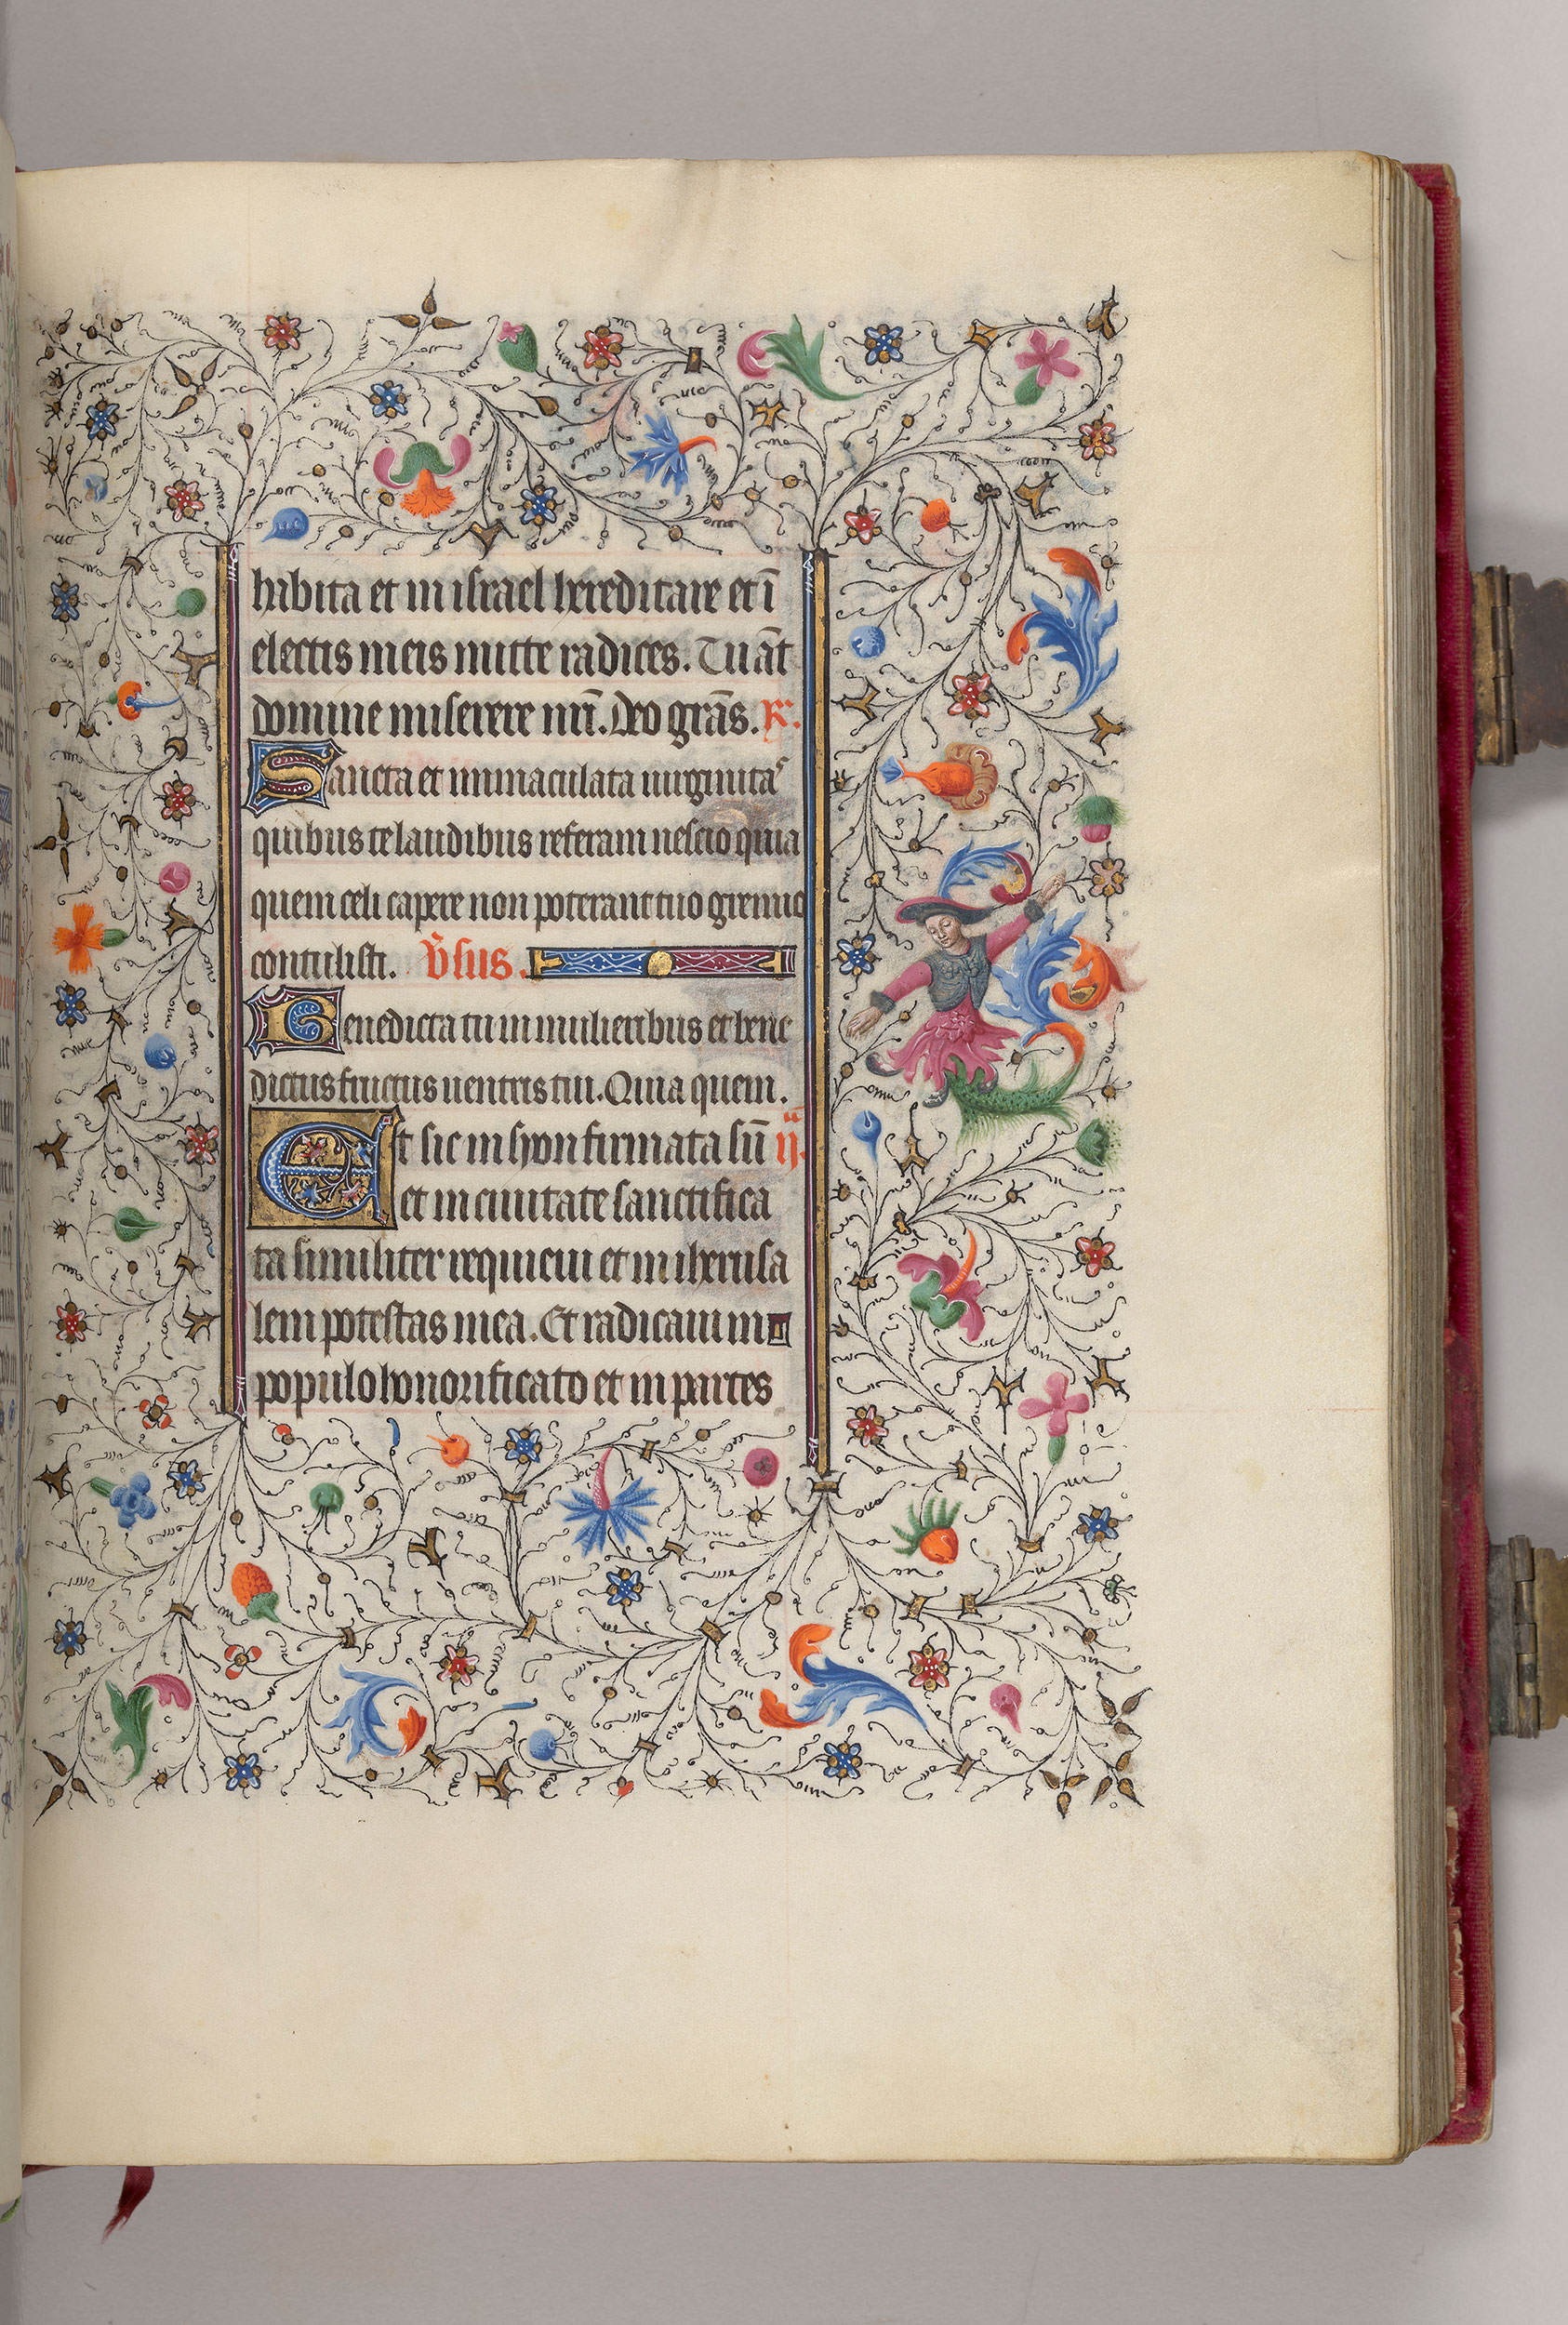 habita et in israel hereditare et ī
electis meis mitte radices. Tu āt
domine miserere nrī. Deo grās. R.
Sancta et immaculata uirginitas
quibus te laudibus referam nescio quia
quem celi capere non poterant tuo gremio
contulisti. v̄sus.
Benedicta tu in mulieribus et bene
dictus fructus uentris tui. Quia quem.
Et sic in syon firmata sū ij.
et in ciuitate sanctifica
ta similiter requieui et in iherusa
lem potestas mea. Et radicaui in
populo honorificato et in partes